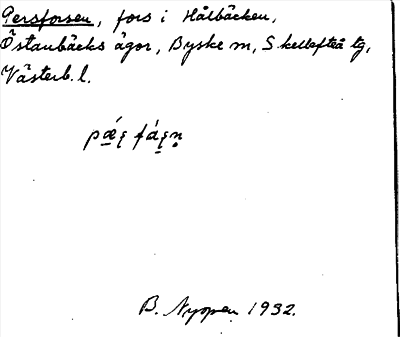 Persforsen, fors i Hålbäcken,
Östanbäcks ägor, Byske m, Skellefteå tg,
Västerb. l.
B. Nyopen 1932.